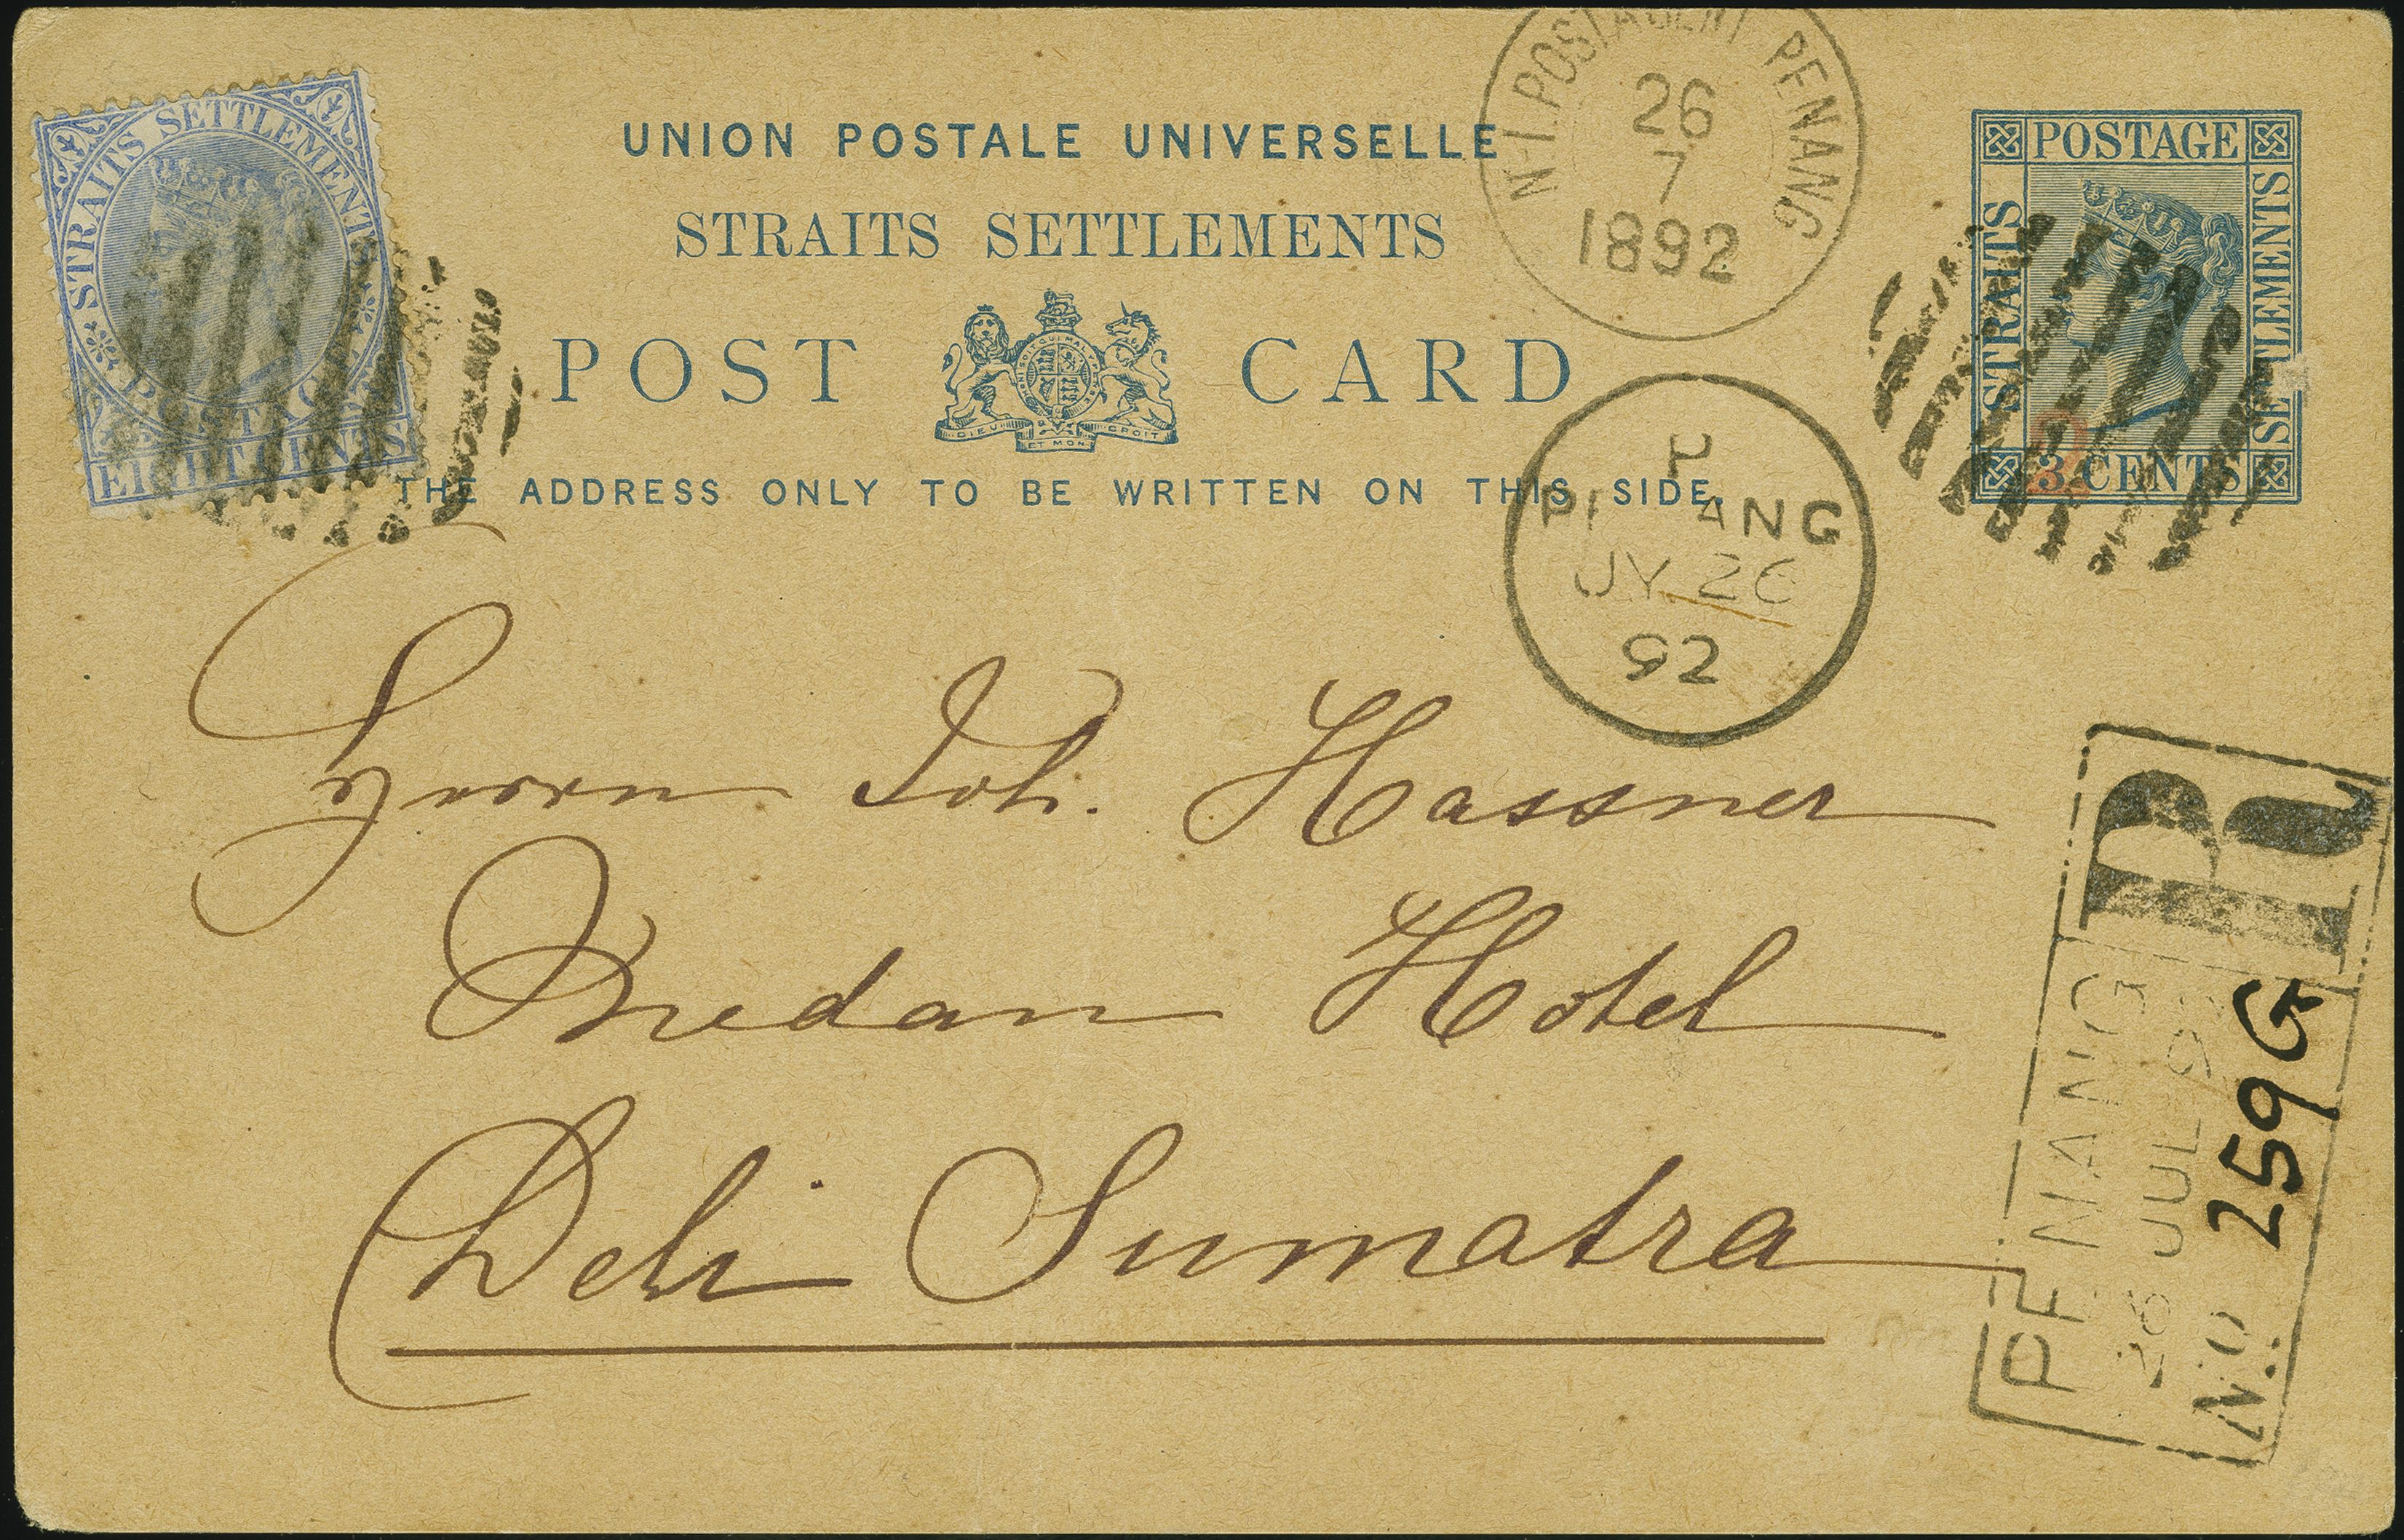 STRAITS SETTLEMENTS
POSTAGE
EIGHT CENTS
UNION POSTALE UNIVERSELLE
STRAITS SETTLEMENTS
POST CARD
DIEU ET MON DROIT
THE ADDRESS ONLY TO BE WRITTEN ON THIS SIDE.
N-I.POSTAGENT PENANG
26
7
1892
POSTAGE
STRAITS
SETTLEMENTS
3 CENTS
P
PENANG
JY 26
92
Herrn Joh. Hassner
Medan Hotel
Deli Sumatra
R
PENANG
26 JUL 92
No. 259